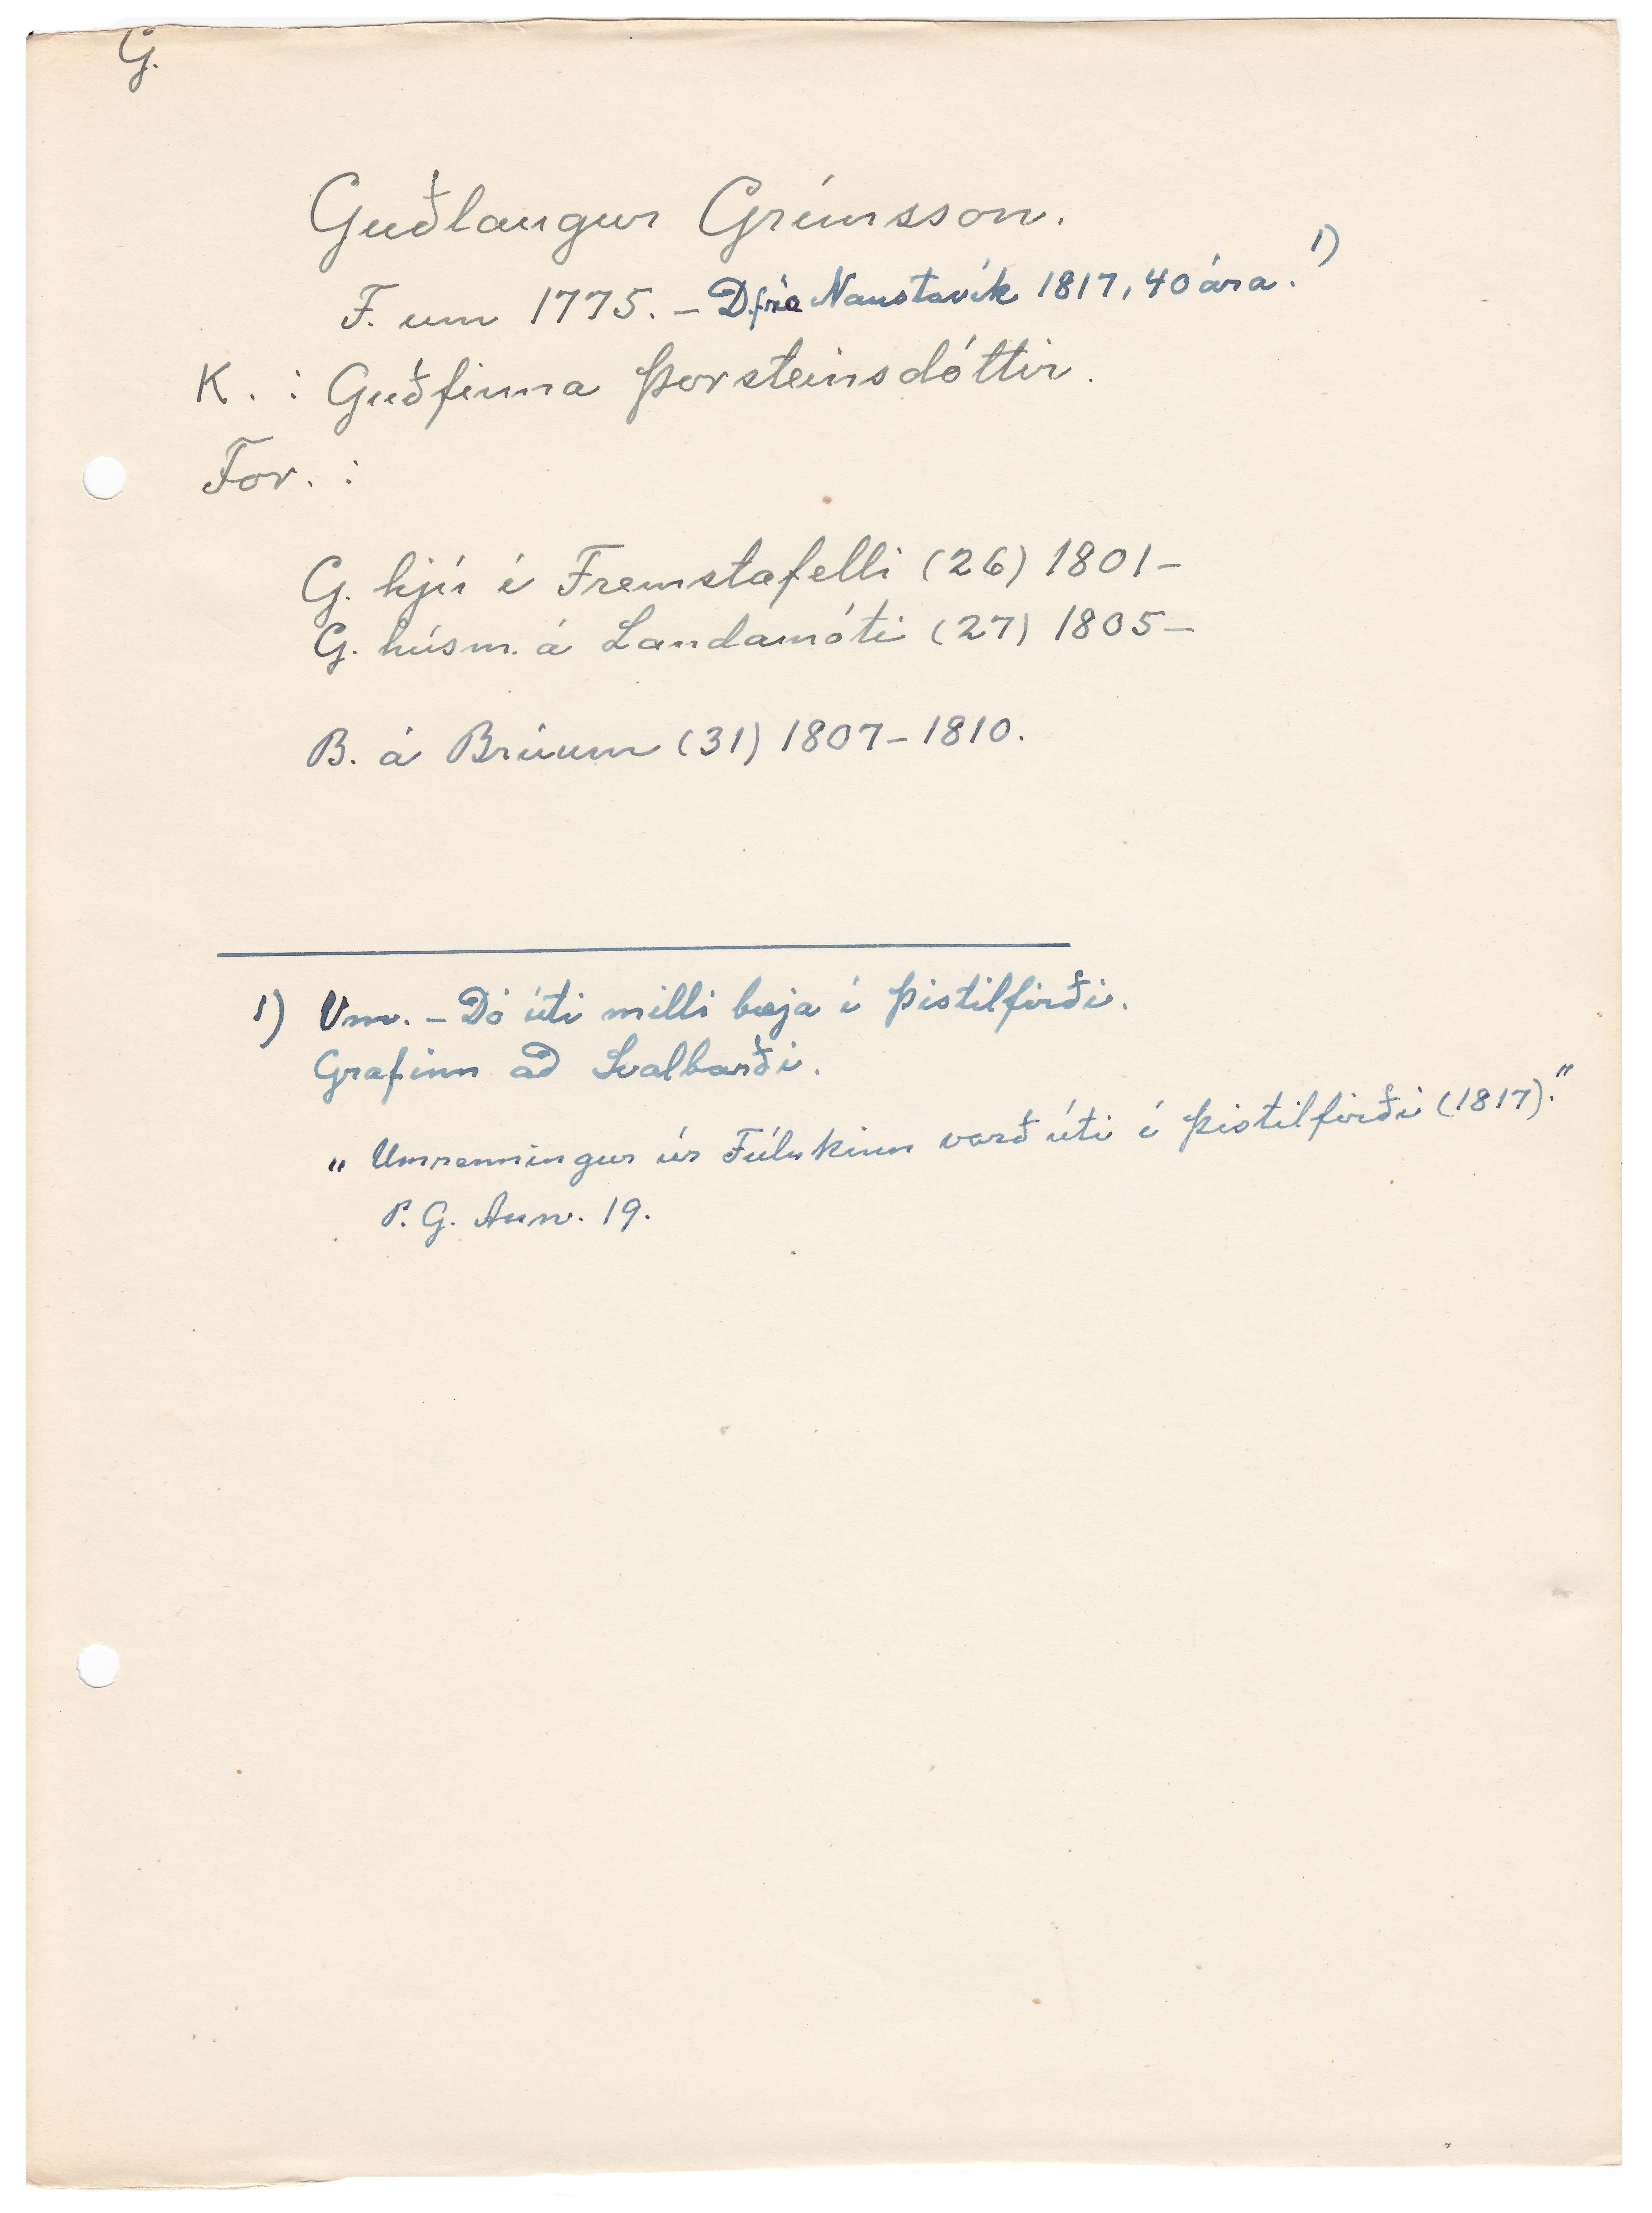 G.
Guðlaugur Grímsson.
F. um 1775. – D. frá Naustavík 1817, 40 ára. 1)
K. : Guðfinna Þorsteinsdóttir.
For. :
G. hjú í Fremstafelli (26) 1801–
G. húsm. á Landamóti (27) 1805–
B. á Brúum (31) 1807–1810.
1) Um. – Dó úti milli bæja í Þistilfirði.
Grafinn að Svalbarði.
„ Umrenningur úr Fúlukinn varð úti í Þistilfirði (1817)."
P. G. Ann. 19.